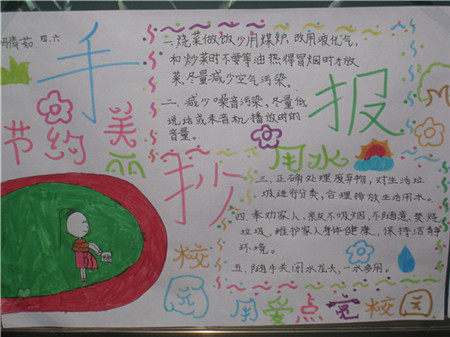 倩茹.四.六
手
抄
报
节约
美丽
校园
用水
一.烧菜做饭少用煤炉,改用液化气,
和炒菜时不要等油热得冒烟时才放
菜,尽量减少空气污染。
二、减少噪音污染,尽量
说话或来音机播放时的
音量。
三、正确处理废弃物,对生活垃
圾进行分类,合理排放生活用水。
四、奉劝家人、亲友不吸烟,不随意焚烧
垃圾,维护家人身体健康,保持洁静
环境。
五、随手关闭水龙头,一水多用。
用爱点亮校园